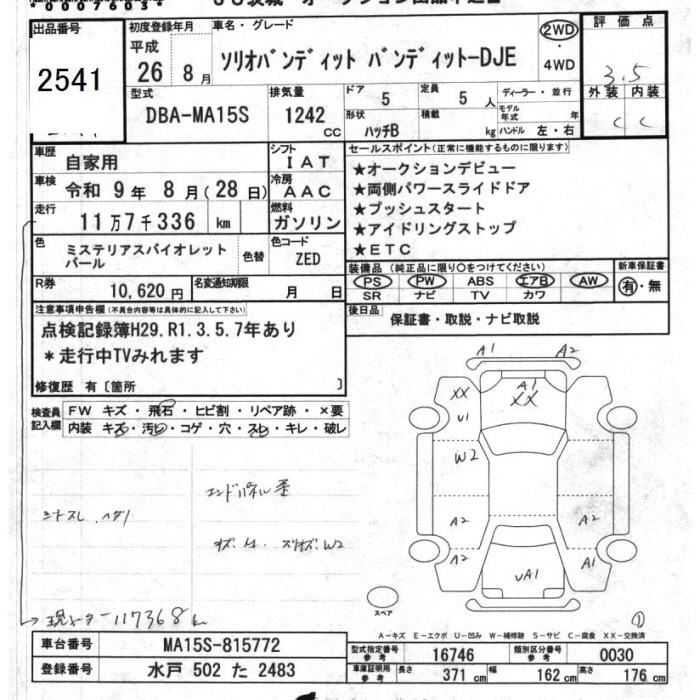 00076034
出品番号
2541
初度登録年月
平成
26 8 月
車名・グレード
ソリオバンディット バンディット-DJE
2WD
・
4WD
評価点
3.5
外装 内装
C C
型式
DBA-MA15S
排気量
1242 CC
ドア 5
定員 5 人
形状 ハッチB
積載 kg
ディーラー・並行
モデル年式 年
ハンドル 左・右
車歴 自家用
シフト IAT
車検 令和 9 年 8 月(28 日)
冷房 AAC
走行 11万7千336 km
燃料 ガソリン
色 ミステリアスバイオレットパール
色替
色コード ZED
R券 10,620 円
名変通知期限 月 日
セールスポイント(正常に機能するものに限ります)
★オークションデビュー
★両側パワースライドドア
★プッシュスタート
★アイドリングストップ
★ETC
装備品(純正品に限り○をつけてください)
PS PW ABS エアB AW
SR ナビ TV カワ
新車保証書
有・無
後日品 保証書・取説・ナビ取説
注意事項申告欄(不具合内容等は具体的に記入して下さい)
点検記録簿H29.R1.3.5.7年あり
*走行中TVみれます
修復歴 有〔箇所 〕
検査員記入欄
FW キズ・飛石・ヒビ割・リペア跡・×要
内装 キズ・汚れ・コゲ・穴・スレ・キレ・破レ
エンドパネル歪
W2
A1 A2
XX A1 XX
U1
W2
A2 A2
A2 A1
UA1
スペア
現メーター117368 km
①
A-キズ E-エクボ U-凹み W-補修跡 S-サビ C-腐食 XX-交換済
車台番号 MA15S-815772
登録番号 水戸 502 た 2483
型式指定番号 参考 16746
類別区分番号 参考 0030
車庫証明用 参考 長さ 371 cm 幅 162 cm 高さ 176 cm